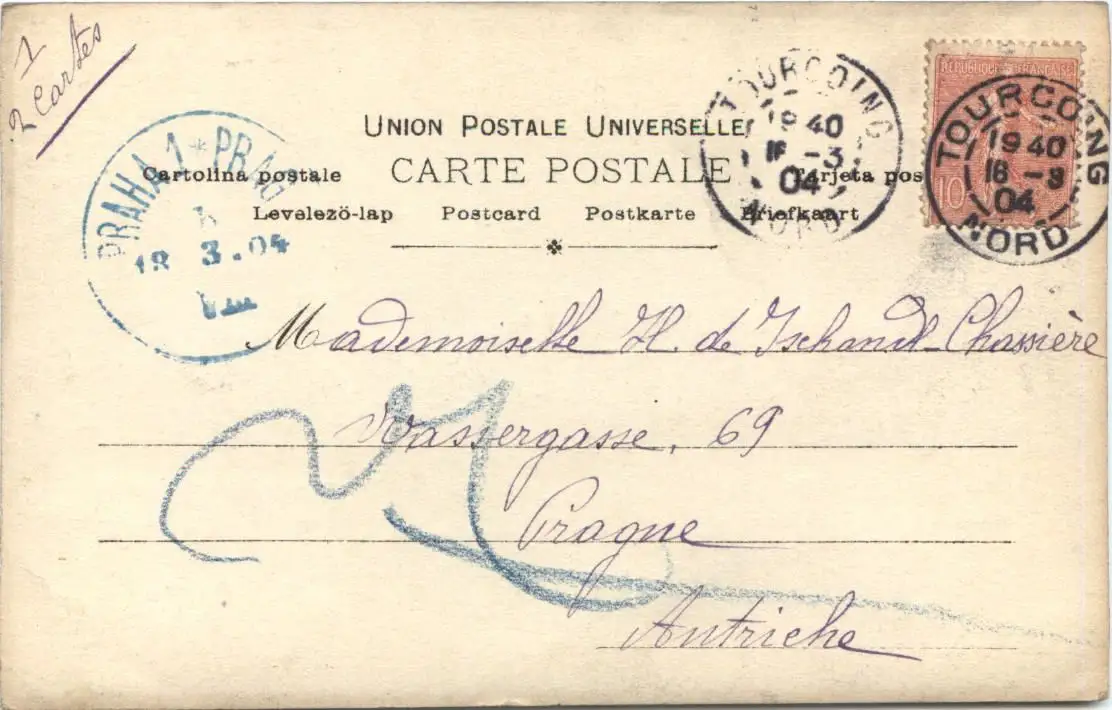 1
2 Cartes
UNION POSTALE UNIVERSELLE
CARTE POSTALE
Cartolina postale
Tarjeta pos
Levelező-lap Postcard Postkarte Briefkaart
PRAHA 1 * PRAG
18 3.04
VIII
TOURCOING
19 40
16 -3
04
NORD
REPUBLIQUE FRANÇAISE
10
TOURCOING
19 40
16 -3
04
NORD
Mademoiselle H. de
Wassergasse, 69
Prague
Autriche